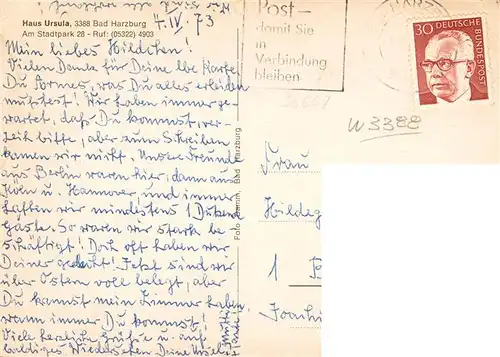 Haus Ursula, 3388 Bad Harzburg
Am Stadtpark 28 - Ruf: (05322) 4903
4. IV. 73
Mein liebes Hildchen!
Vielen Dank für Deine lbe Karte
Du Armes, was Du alles erleiden
mußtest! Wir haben immer ge-
wartet, daß Du kommst, ver-
zeih bitte, aber zum Schreiben
kamen wir nicht. Unsere Freunde
aus Berlin waren hier, dann aus
Köln u. Hannover und immer
hatten wir mindestens 1 Dutzend
Gäste. So waren wir stark be
schäftigt! Doch oft haben wir
Deiner gedacht! Jetzt sind wir
über Ostern voll belegt, aber
Du kannst mein Zimmer haben,
wann immer Du kommst!
Viele herzliche Grüße u. auf
baldiges Wiedersehen Deine
Foto Bad Harzburg
Post-
damit Sie
in
Verbindung
bleiben
30
DEUTSCHE
BUNDESPOST
W 3388
Frau
Hildeg
1
Joachi